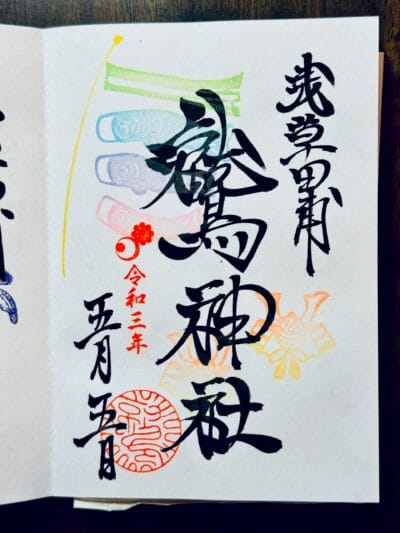 浅草田甫
鷲神社
令和三年
五月五日